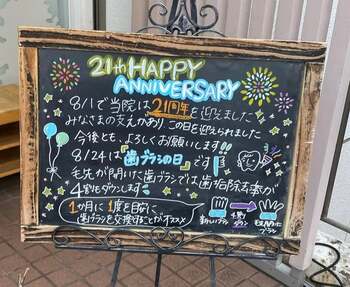 21th HAPPY
ANNIVERSARY
8/1で当院は21周年を迎えました
みなさまの支えのあり、この日を迎えられました
今後とも、よろしくお願いします!!
8/24は「歯ブラシの日」です!
毛先が開いた歯ブラシでは歯垢除去率が
4割もダウンします
1か月に1度を目安に
歯ブラシを交換することがオススメ
新しいブラシ
4割
ダウン
ブラシ